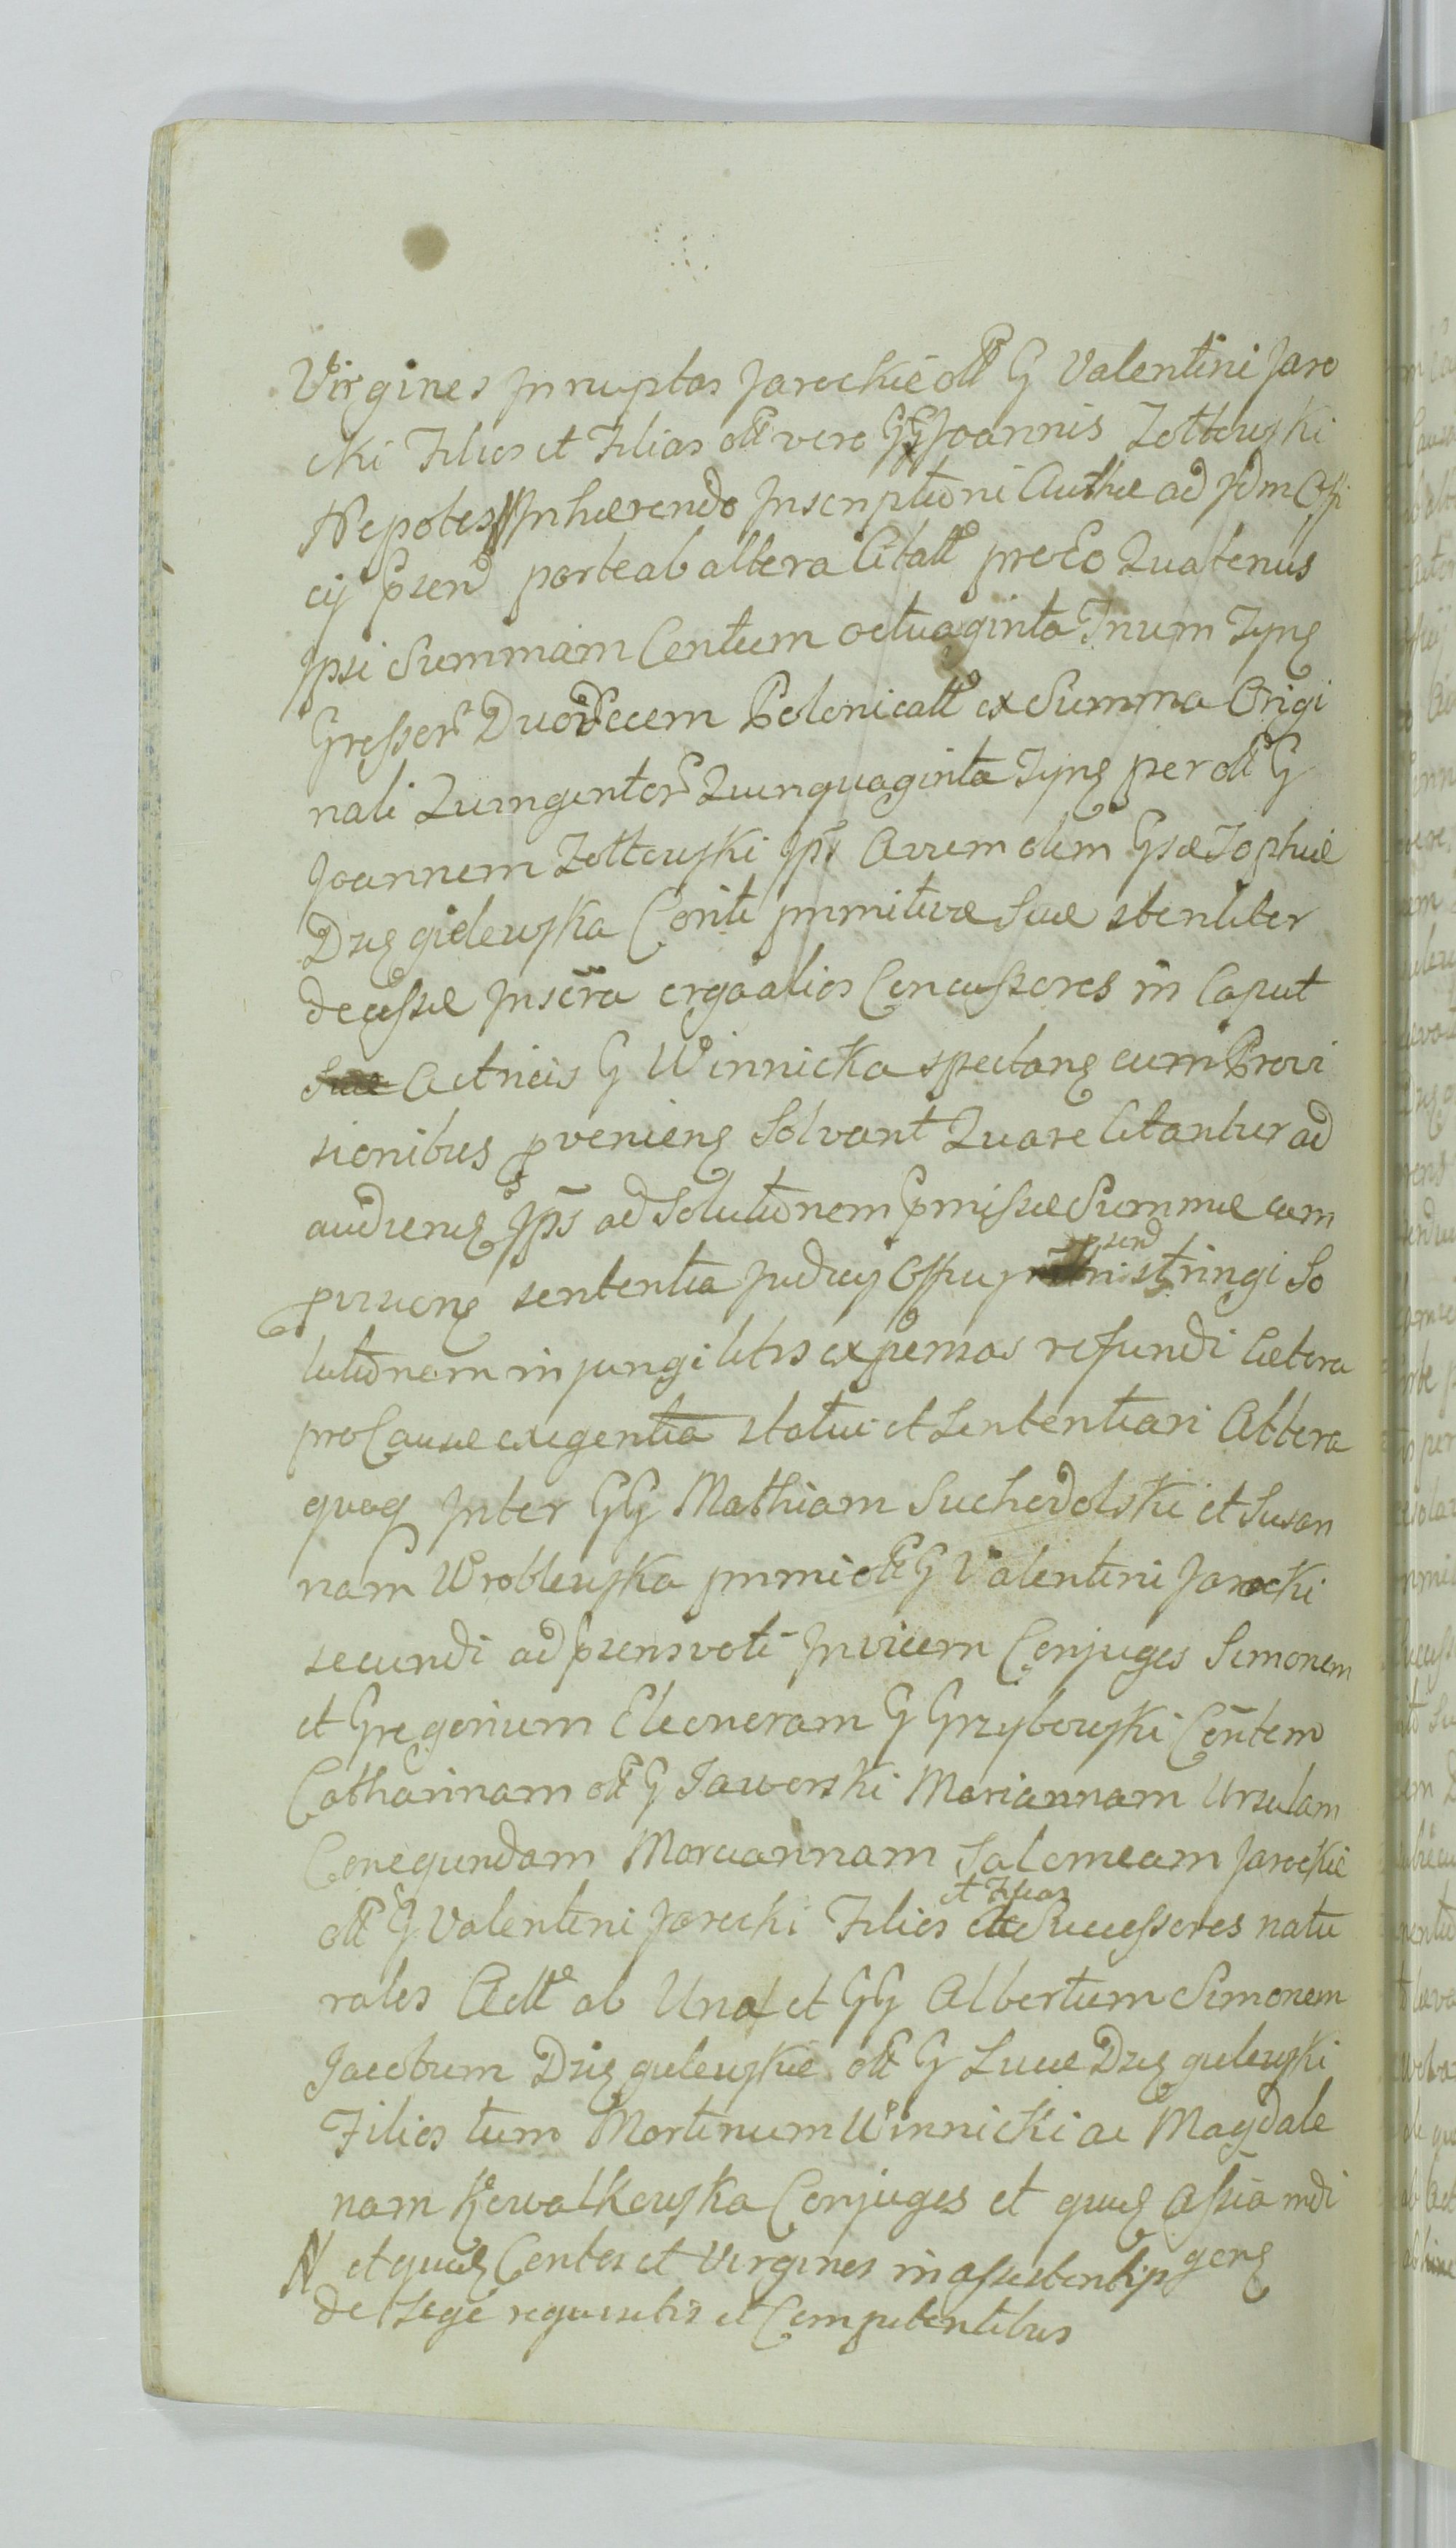 Virgines Innuptas Jarockie oll G Valentini Jaro
cki Filios et Filias oll vero GG Joannis Zołtowski
Nepotes Inhærendo Inscriptioni Authæ ad Idm Offi
cij Psend parte ab altera Citatt pro Eo Quatenus
Ipsi Summam Centum octuaginta Trium Tynf
Grossor Duodecem Polonicall ex Summa Origi
nali Quingentor Quinquaginta Tynf per oll G
Joannem Zołtowski Ips Avum olim Gsæ Zophiæ
Drzgidewska Conti primitivæ Suæ steriliter
decessæ Inscra erga alios Concussores in Caput
Actricis G Winnicka spectang cum Provi
sionibus proveniens Solvant Quare Citantur ad
audiend Ips ad Solutionem Pmissæ Summæ cum
sententia Judicij Officij psend stringi So
lutionem injungi litis expensas refundi Cætera
pro Causæ exigentia statui et Sententiari Altera
quoq Inter GG Mathiam Suchodolski et Susan
nam Wroblewska primi oll G Valentini Jarocki
secundi ad psens voti Invicem Conjuges Simonem
et Gregorium Eleonoram G Grzybowski Contem
Catharinam oll G Jaworski Mariannam Ursulam
Conegundam Mariannam Salomeam Jarockie
oll G Valentini Jarocki Filios et Filias Successores natu
rales Actt ab Una et GG Albertum Simonem
Jacobum Drzgulewskie oll G Lucæ Drzgulewski
Filios tum Martinum Winnicki ac Magdale
nam Kowalkowska Conjuges et quas Assia mdi
N et quas Contes et Virgines in assistentijs gens
de Lege requisitis et Competentibus